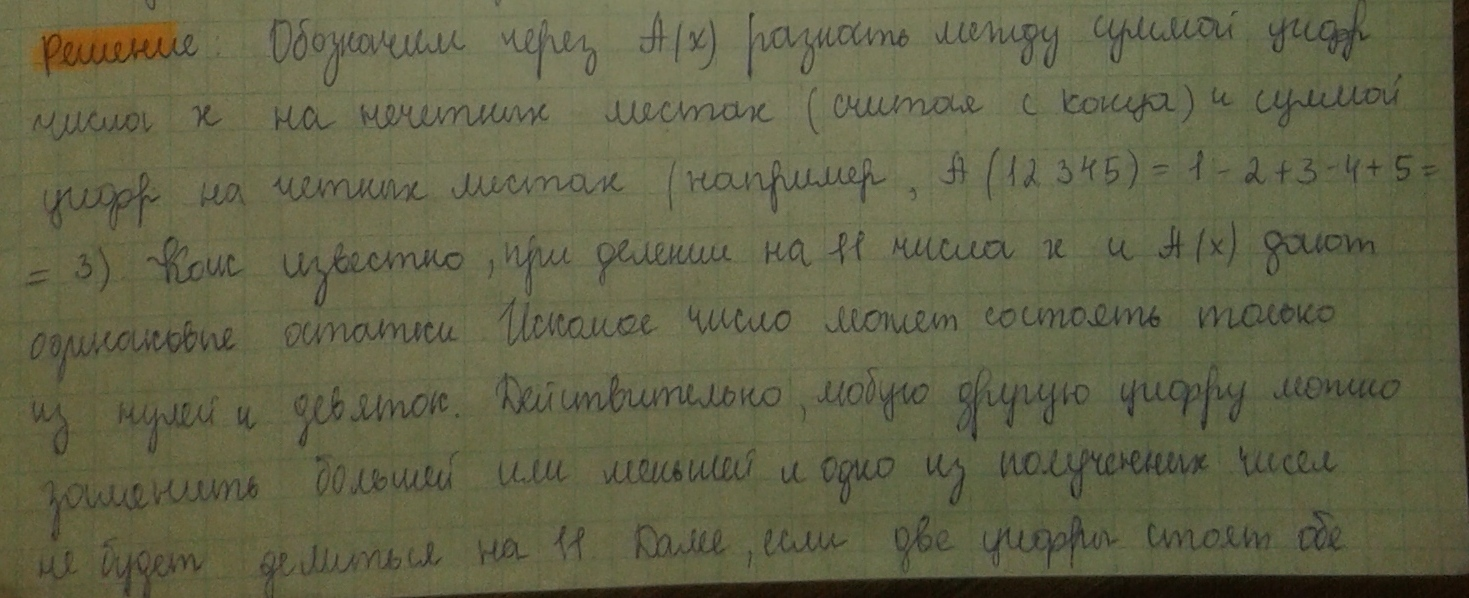 Решение. Обозначим через A(x) разность между суммой цифр
числа x на нечетных местах (считая с конца) и суммой
цифр на четных местах (например, A(12345) = 1 - 2 + 3 - 4 + 5 =
= 3) Как известно, при делении на 11 числа x и A(x) дают
одинаковые остатки Искомое число может состоять только
из нулей и девяток. Действительно, любую другую цифру можно
заменить большей или меньшей и одно из полученных чисел
не будет делиться на 11 Далее, если две цифры стоят обе